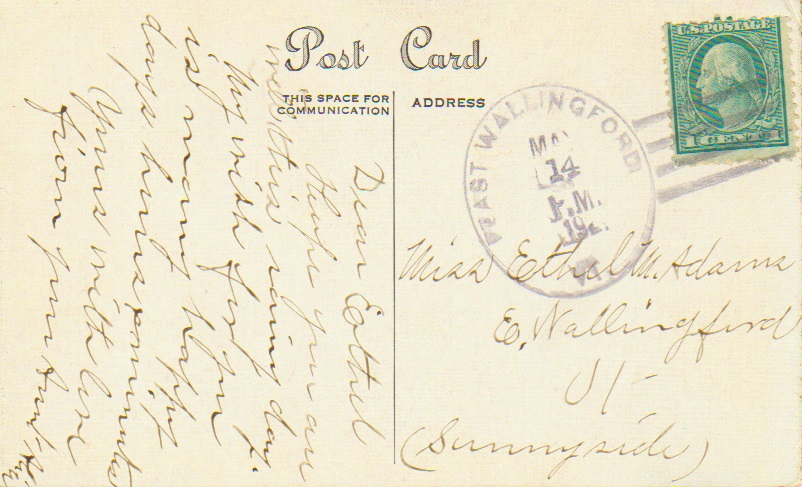 Post Card
THIS SPACE FOR
COMMUNICATION
ADDRESS
U.S. POSTAGE
1 CENT 1
EAST WALLINGFORD
MAY
14
P.M.
VT.
Dear Ethel
I hope you are
well this rainy day.
My wish for you
is many happy
days hours, minutes
Yours with love
from your Aunt
Miss Ethel M. Adams
E. Wallingford
Vt
(Sunnyside)